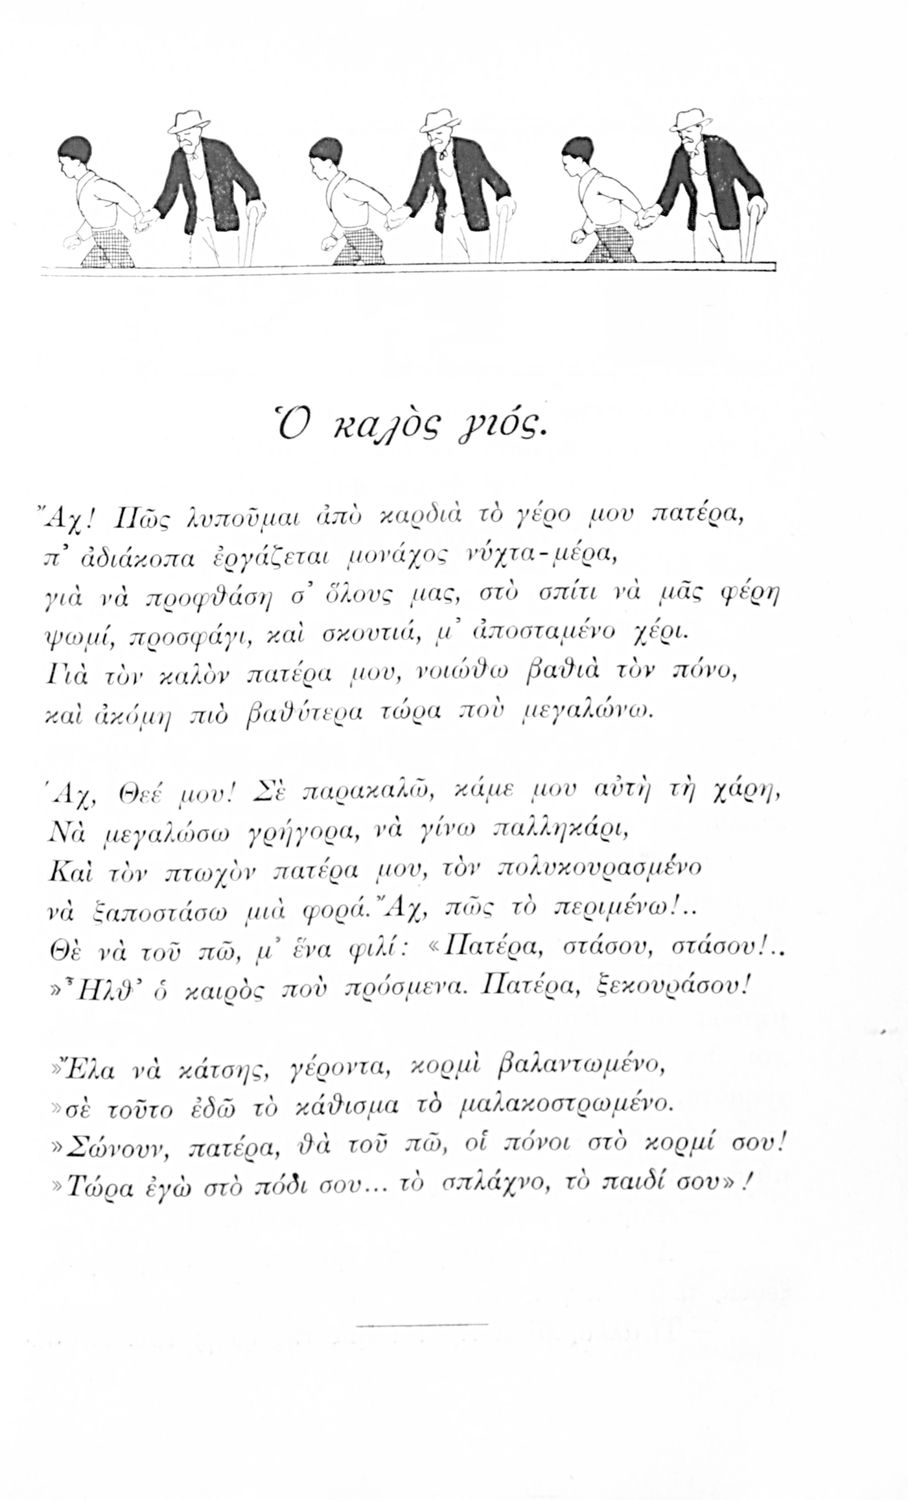 Ὁ καλὸς γιός.
Ἄχ! Πῶς λυποῦμαι ἀπὸ καρδιὰ τὸ γέρο μου πατέρα,
π' ἀδιάκοπα ἐργάζεται μονάχος νύχτα-μέρα,
γιὰ νὰ προφθάση σ' ὅλους μας, στὸ σπίτι νὰ μᾶς φέρη
ψωμί, προσφάγι, καὶ σκουτιά, μ' ἀποσταμένο χέρι.
Γιὰ τὸν καλὸν πατέρα μου, νοιώθω βαθιὰ τὸν πόνο,
καὶ ἀκόμη πιὸ βαθύτερα τώρα ποὺ μεγαλώνω.
Ἀχ, Θεέ μου! Σὲ παρακαλῶ, κάμε μου αὐτὴ τὴ χάρη,
Νὰ μεγαλώσω γρήγορα, νὰ γίνω παλληκάρι,
Καὶ τὸν πτωχὸν πατέρα μου, τὸν πολυκουρασμένο
νὰ ξαποστάσω μιὰ φορά. Ἄχ, πῶς τὸ περιμένω!..
Θὲ νὰ τοῦ πῶ, μ' ἕνα φιλί: «Πατέρα, στάσου, στάσου!..
»Ἦλθ' ὁ καιρὸς ποὺ πρόσμενα. Πατέρα, ξεκουράσου!
»Ἔλα νὰ κάτσης, γέροντα, κορμὶ βαλαντωμένο,
»σὲ τοῦτο ἐδῶ τὸ κάθισμα τὸ μαλακοστρωμένο.
»Σώνουν, πατέρα, θὰ τοῦ πῶ, οἱ πόνοι στὸ κορμί σου!
»Τώρα ἐγὼ στὸ πόδι σου... τὸ σπλάχνο, τὸ παιδί σου» !